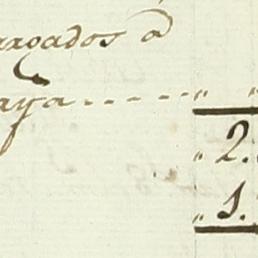 rgados á
aya ----- „ „
„ 2.
„ 1.